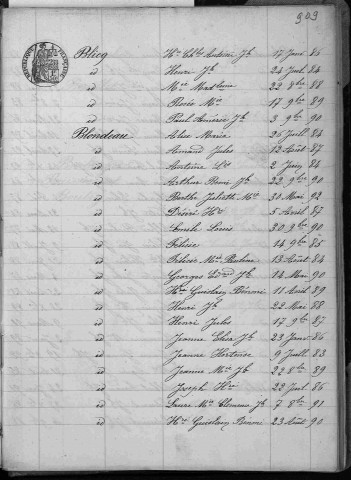 909
RÉPUBLIQUE FRANÇAISE
Blicq Hri Chles Antoine Jh 17 Janv 86
id Henri Jh 24 Juil 84
id Mie Madleine 22 8bre 88
id Rosée Mie 17 9bre 89
id Paul Aimérie Jh 3 9bre 90
Blondeau Alice Maria 25 Juill 84
id Amand Jules 12 Août 87
id Antoine Ls 2 Juin 84
id Arthur Benoi Jh 22 9bre 90
id Berthe Juliette Mie 30 Mai 92
id Désiré Hri 5 Avril 87
id Emile Louis 30 9bre 90
id Félicie 14 9bre 85
id Mie Pauline 13 Août 84
id Georges Edmd Jh 14 Mai 90
id Hri Guislain Bénoni 11 Avril 89
id Henri Jh 22 Mai 88
id Henri Jules 17 9bre 87
id Jeanne Elisa Jh 23 Janv 86
id Jeanne Hortense 9 Juill 83
id Jeanne Mie Jh 22 8bre 89
id Joseph Hri 28 Juil 86
id Laure Mie Clémence Jh 7 8bre 91
id Hri Guislain Bénoni 23 Août 90